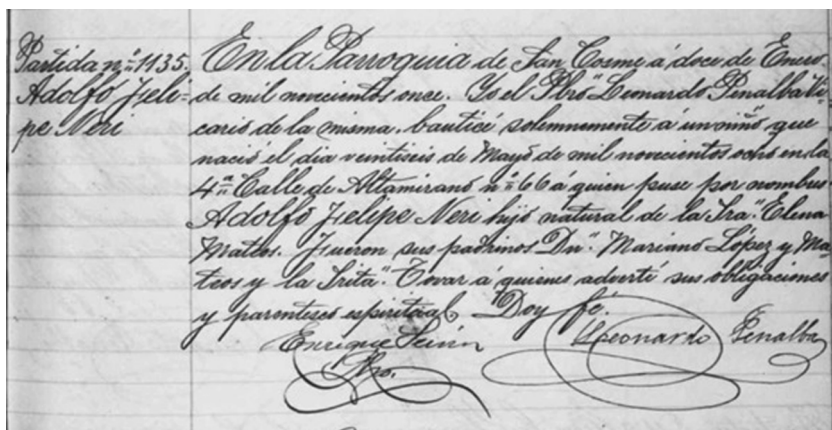 Partida nº 1135.
Adolfo Feli-
pe Neri
En la Parroquia de San Cosme á doce de Enero
de mil novecientos once. Yo el Pbro. Leonardo Penalba Vi-
cario de la misma, bauticé solemnemente á un niño que
nació el dia veintiseis de Mayo de mil novecientos ocho en la
4ª Calle de Altamirano nº 66 á quien puse por nombre
Adolfo Felipe Neri hijo natural de la Sra. Elena
Mattos. Fueron sus padrinos Dn. Mariano López y Ma-
teos y la Srita. Tovar á quienes advertí sus obligaciones
y parentesco espiritual. Doy fé.
Enrique Leonardo Penalba
Pbro.